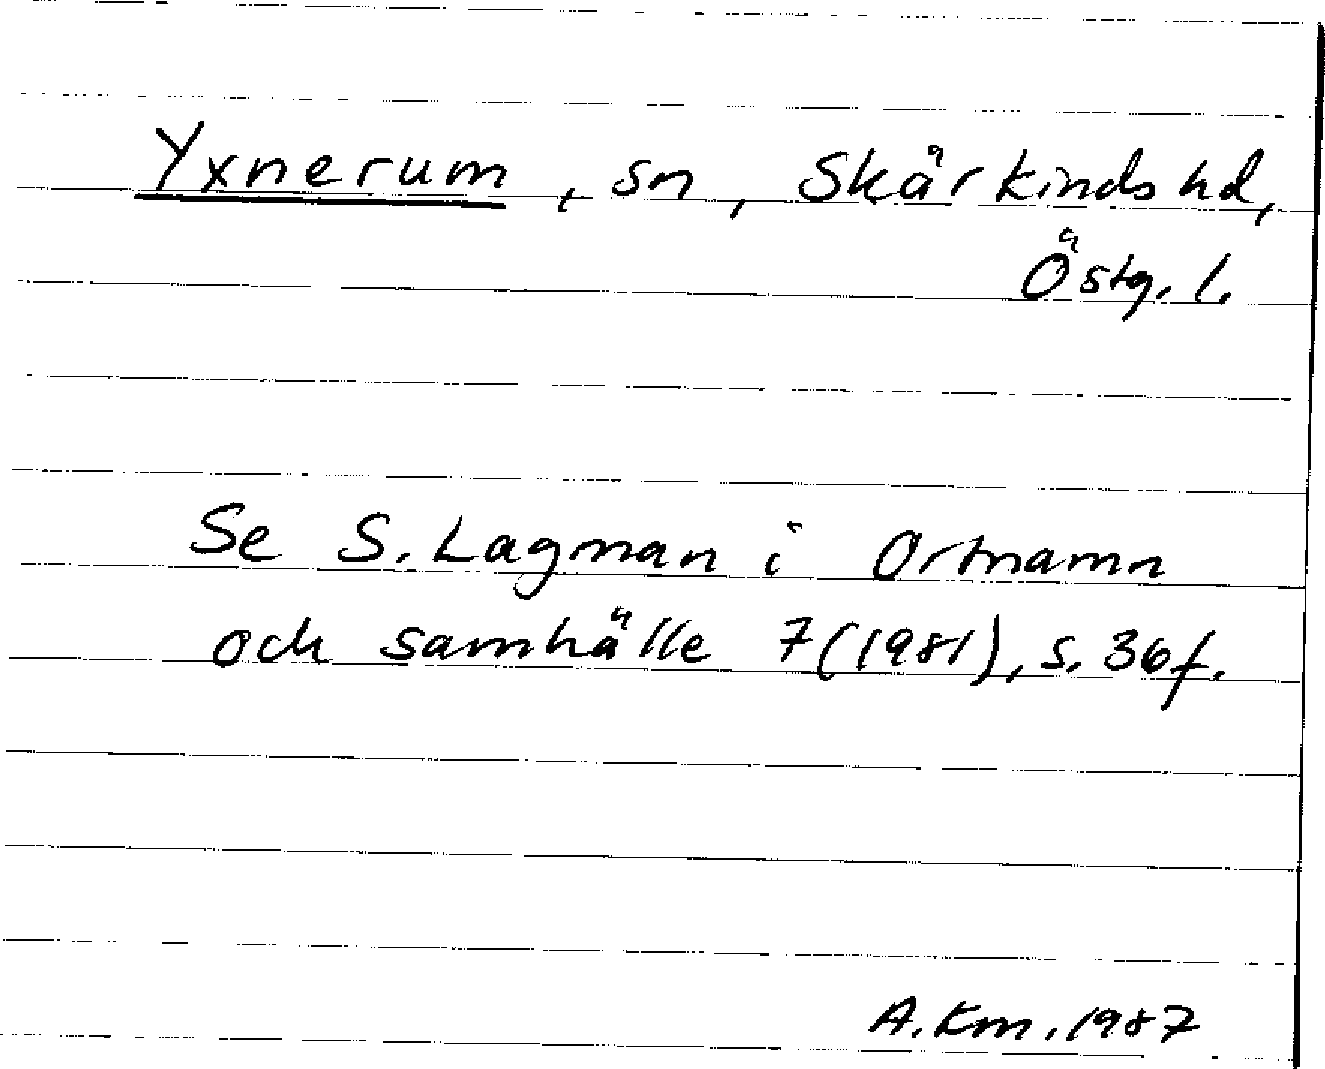 Yxnerum, sn, Skärkinds hd,
Östg. l.
Se S. Lagman i Ortnamn
och samhälle 7(1981), s. 36f.
A. Km. 1987